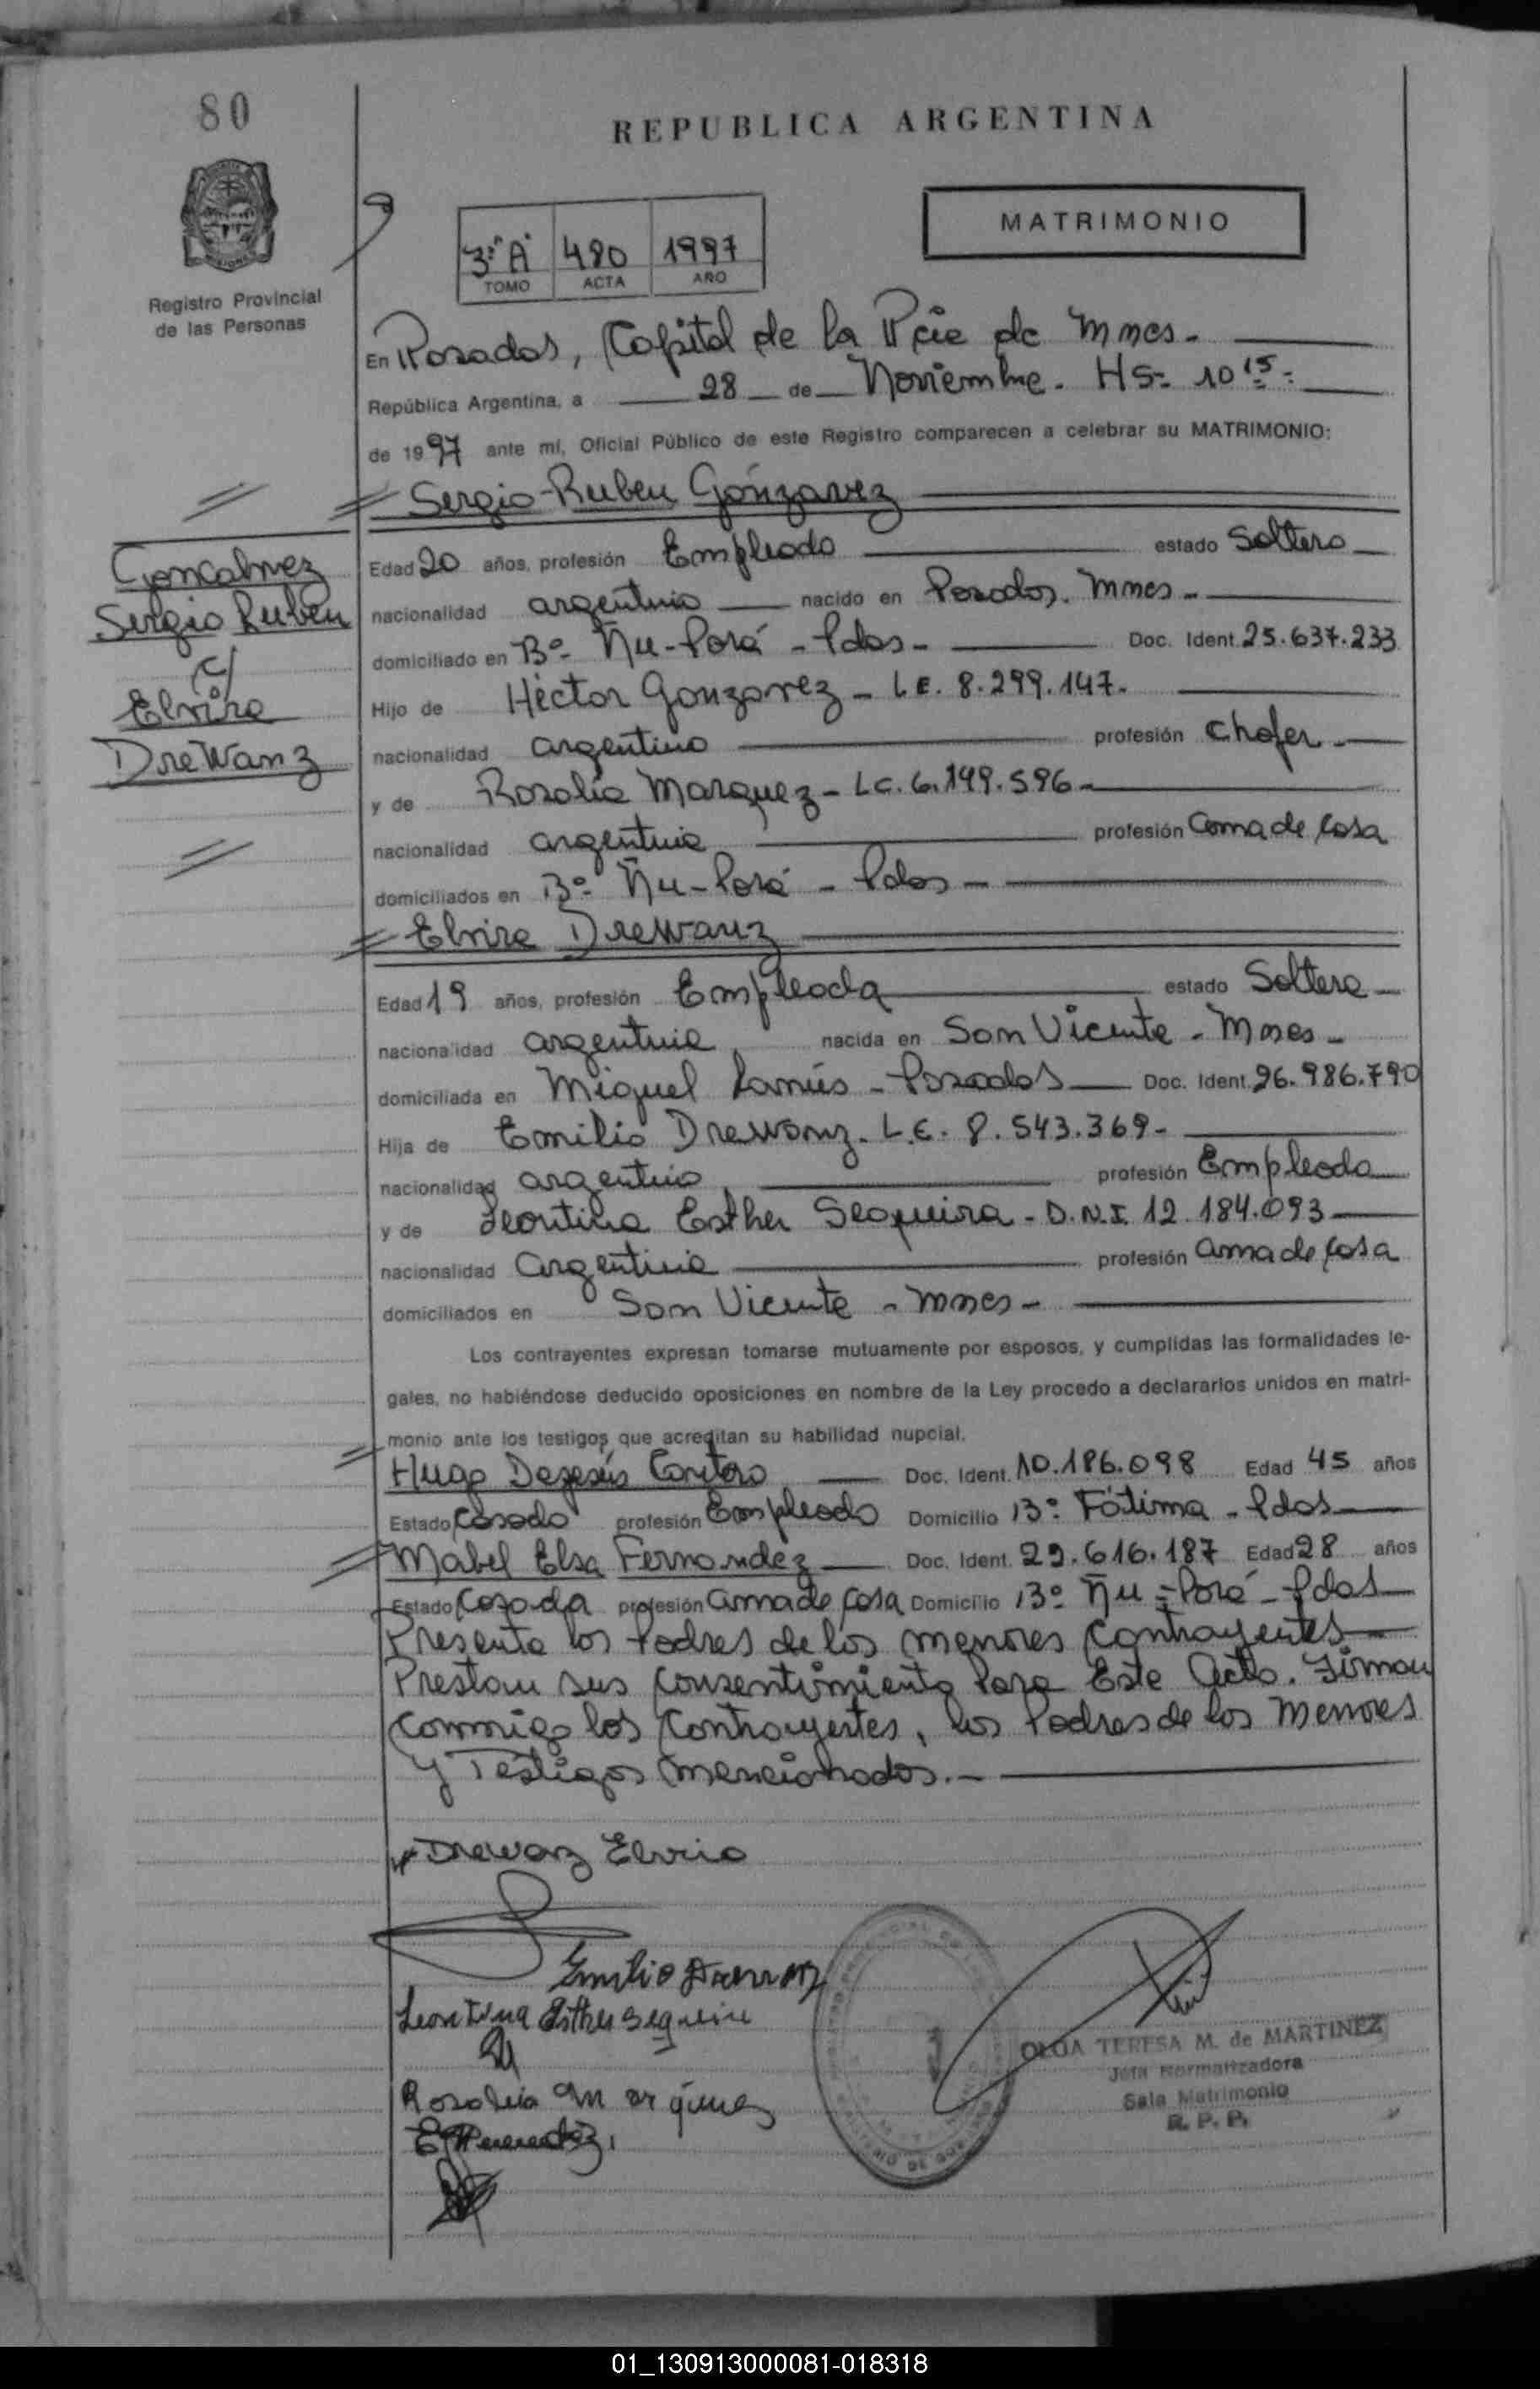 80
REPUBLICA ARGENTINA
MATRIMONIO
3º "A" 480 1997
TOMO ACTA AÑO
Registro Provincial
de las Personas
En Posadas, Capital de la Pcia de Mnes.
República Argentina, a 28 de Noviembre. HS= 10 15=
de 1997 ante mí, Oficial Público de este Registro comparecen a celebrar su MATRIMONIO:
Sergio Ruben Gonzarvez
Goncalvez
Sergio Ruben
c/
Elvira
Drewanz
Edad 20 años, profesión Empleado estado Soltero
nacionalidad argentino nacido en Posadas. Mnes -
domiciliado en Bº- Ñu-Porá - Pdas - Doc. Ident. 25.637.233
Hijo de Héctor Gonzarvez - L.E. 8.299.147.
nacionalidad argentino profesión chofer -
y de Rosalia Marquez - L.C. 6.149.596 -
nacionalidad argentina profesión ama de casa
domiciliados en Bº- Ñu-Porá - Pdas -
Elvira Drewanz
Edad 19 años, profesión Empleada estado Soltera
nacionalidad argentina nacida en San Vicente - Mnes -
domiciliada en Miguel Lanús - Posadas Doc. Ident. 26.986.790
Hija de Emilio Drewanz. L.E. 8.543.369 -
nacionalidad argentino profesión Empleado
y de Leontina Esther Sequeira - D.N.I 12.184.093
nacionalidad Argentina profesión ama de casa
domiciliados en San Vicente - Mnes -
Los contrayentes expresan tomarse mutuamente por esposos, y cumplidas las formalidades le-
gales, no habiéndose deducido oposiciones en nombre de la Ley procedo a declararlos unidos en matri-
monio ante los testigos que acreditan su habilidad nupcial.
Hugo Dejesús Doc. Ident. 10.186.098 Edad 45 años
Estado Casado profesión Empleado Domicilio Bº Fátima - Pdas
Mabel Elsa Fernandez Doc. Ident. 29.616.187 Edad 28 años
Estado Casada profesión ama de casa Domicilio Bº Ñu-Porá - Pdas
Presente los Padres de los menores Contrayentes
Prestan sus consentimiento Para Este Acto. Firman
conmigo los Contrayentes, los Padres de los Menores
y Testigos mencionados. -
Drewanz Elvira
Emilio Drewanz
Leontina Esther Sequeira
Rosalia Marquez
OLGA TERESA M. de MARTINEZ
Jefa Normatizadora
Sala Matrimonio
R. P. P.
01_130913000081-018318